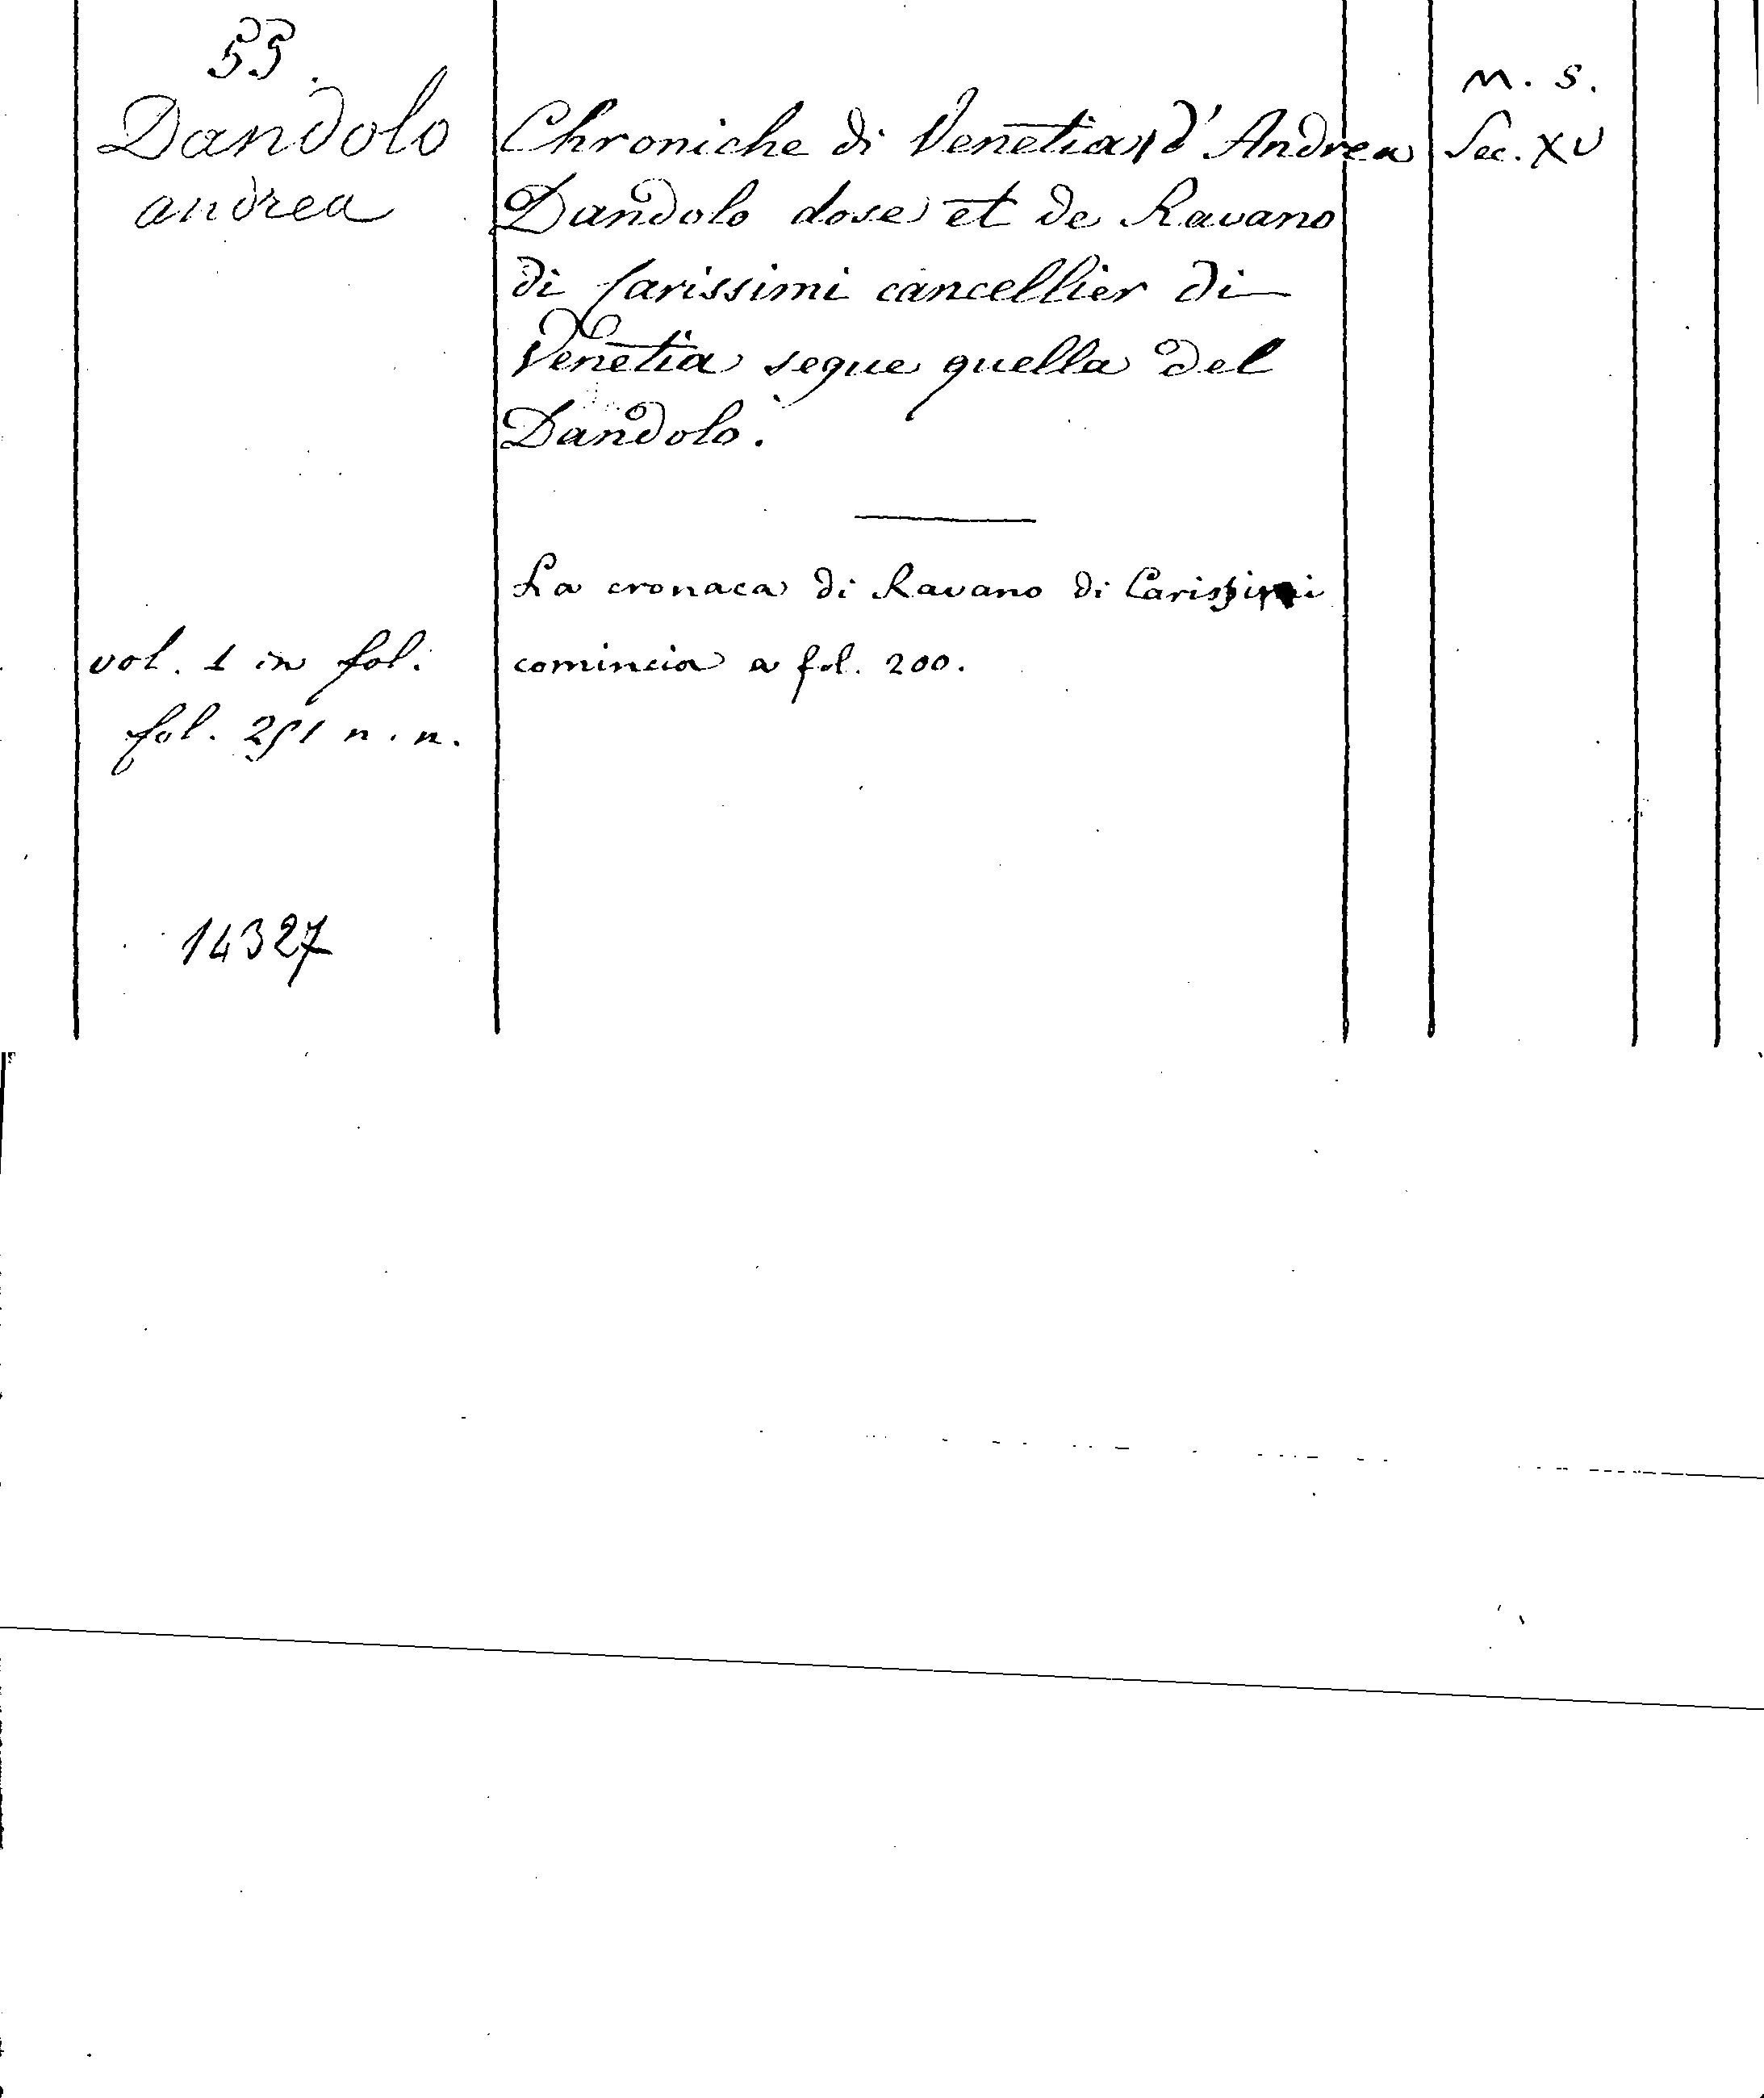 55.
Dandolo
andrea
Chroniche di Venetia, d'Andrea
Dandolo dose et de Ravano
di Carissimi cancellier di
Venetia segue quella del
Dandolo.
La cronaca di Ravano di Carissimi
comincia a fol. 200.
vol. 1 in fol.
fol. 251 n. n.
14327
M. S.
Sec. XV